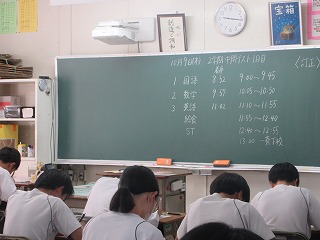 宝箱
10月9日(木) 2学期中間テスト1日目
〈訂正〉
1 国語 8:52 9:00～9:45
2 数学 9:57 10:05～10:50
3 英語 11:02 11:10～11:55
給食 11:55～12:40
ST 12:40～12:55
13:00 一斉下校